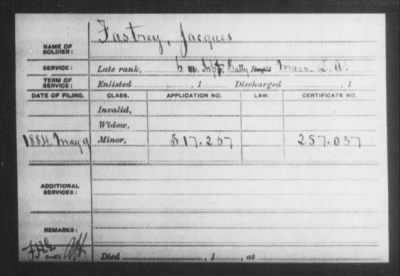 NAME OF SOLDIER: Fastrey, Jacques
SERVICE: Late rank, Batty Mass. L. A.
TERM OF SERVICE: Enlisted , 1 Discharged , 1
DATE OF FILING. CLASS. APPLICATION NO. LAW. CERTIFICATE NO.
Invalid,
Widow,
1884 May 9 Minor, 317.257 257.057
ADDITIONAL SERVICES:
REMARKS:
Died , 1 , at